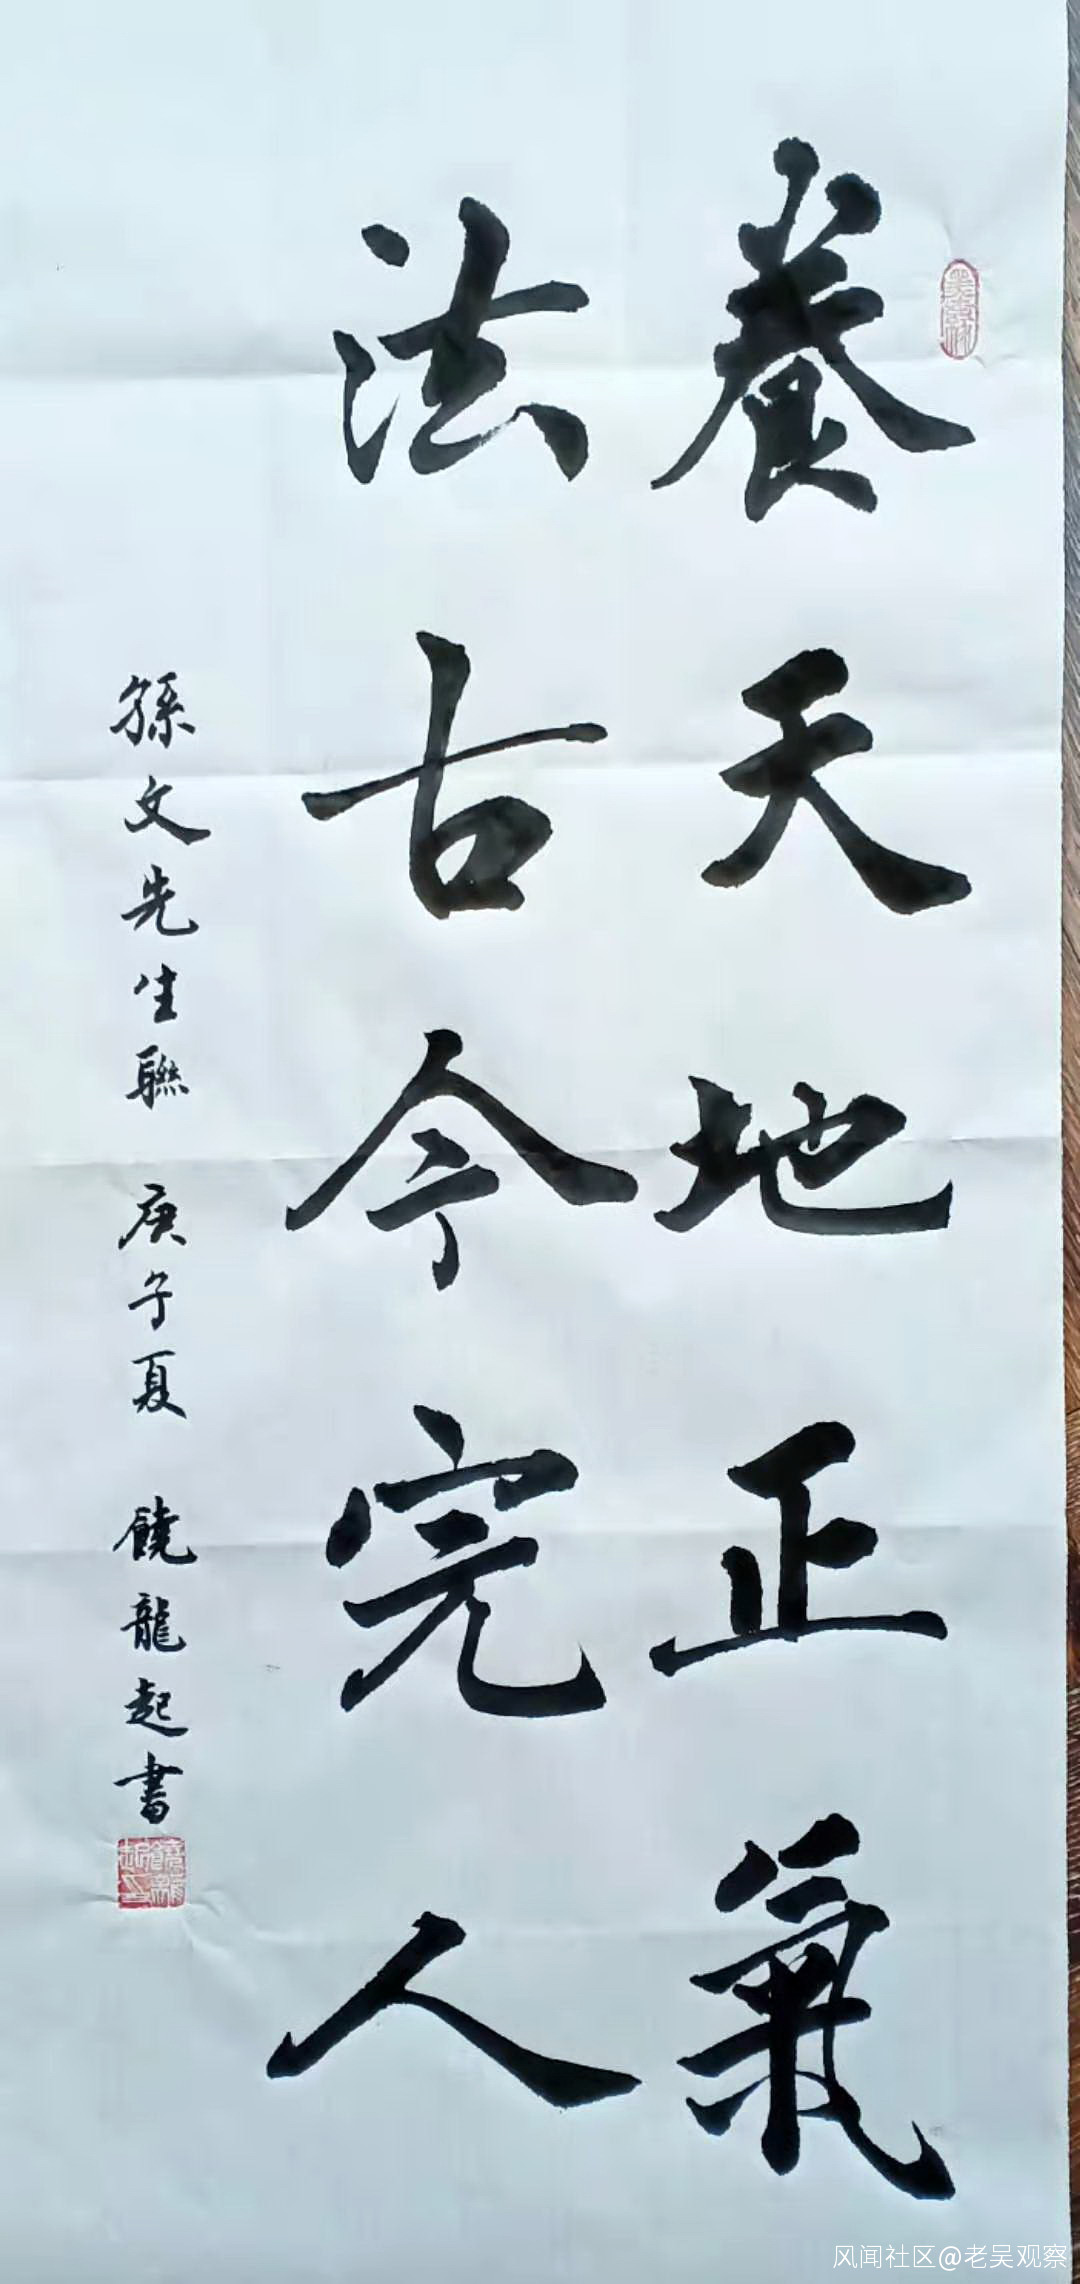 養天地正氣
法古今完人
孫文先生聯 庚子夏 饒龍起書
饒龍起印
风闻社区@老吴观察